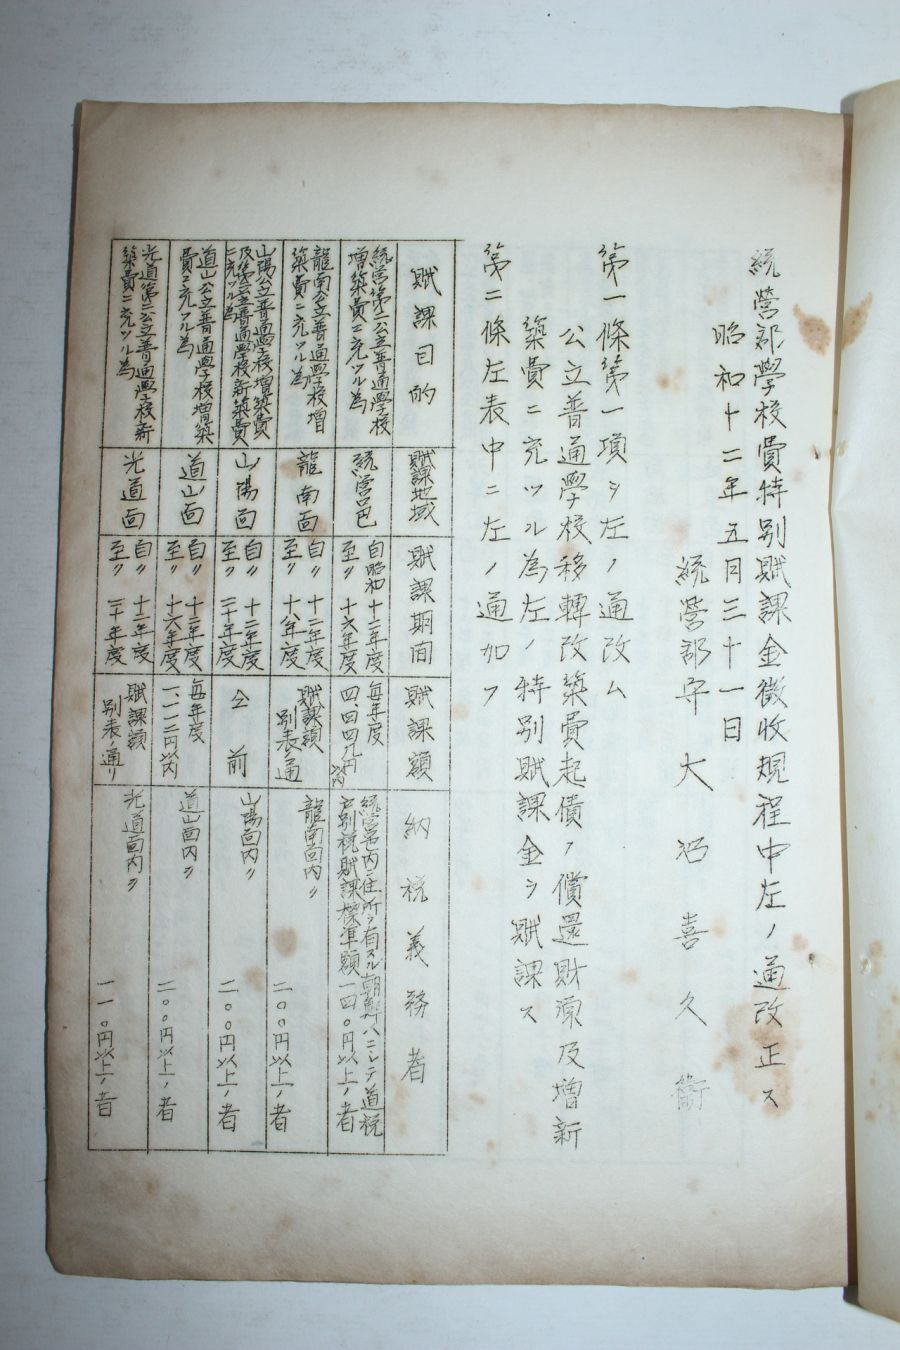 統營郡學校費特別賦課金徴收規程中左ノ通改正ス
昭和十二年五月三十一日
統營郡守 大 沼 喜 久 衞
第一條第一項ヲ左ノ通改ム
公立普通學校移轉改築費起債ノ償還財源及増新
築費ニ充ツル為左ノ特別賦課金ヲ賦課ス
第二條左表中ニ左ノ通加フ
賦課目的
賦課地域
賦課期間
賦課額
納税義務者
統營第二公立普通學校
増築費ニ充ツル為
統營邑
自昭和十二年度
至〃十六年度
毎年度
四、四四九円
以内
統營邑内ニ住所ヲ有スル朝鮮人ニシテ道税
戸別税賦課標準額一四〇円以上ノ者
龍南公立普通學校増
築費ニ充ツル為
龍南面
自〃十二年度
至〃十八年度
賦課額
別表ノ通
龍南面内〃
二〇〇円以上ノ者
山陽公立普通學校増築費
及第二公立普通學校新築費
ニ充ツル為
山陽面
自〃十二年度
至〃二十年度
仝前
山陽面内〃
二〇〇円以上ノ者
道山公立普通學校増築
費ニ充ツル為
道山面
自〃十二年度
至〃十六年度
毎年度
一、一一二円以内
道山面内〃
二〇〇円以上ノ者
光道第二公立普通學校新
築費ニ充ツル為
光道面
自〃十二年度
至〃二十年度
賦課額
別表ノ通リ
光道面内〃
一一〇円以上ノ者